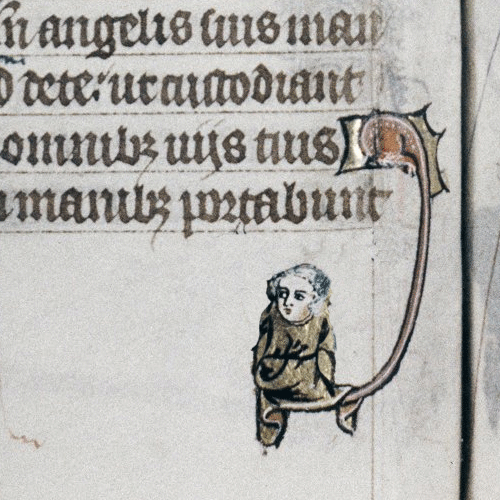 angelis suis man
d de te: ut custodiant
omnibꝫ uijs tuis
manibꝫ portabunt